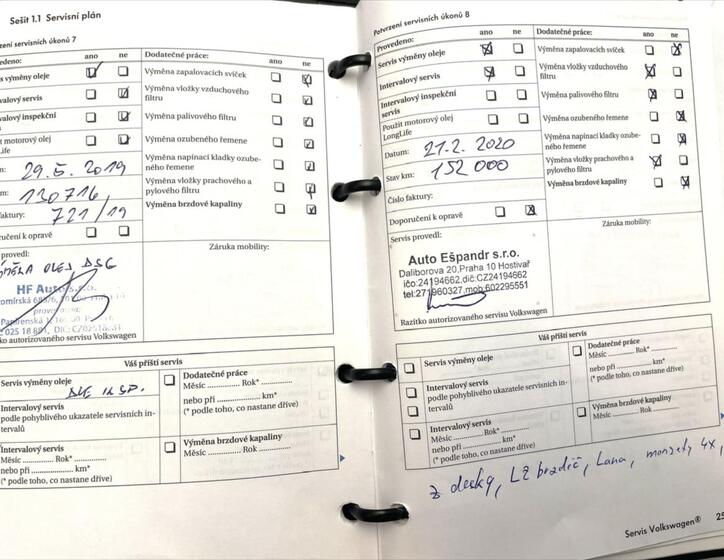 Sešit 1.1 Servisní plán
zení servisních úkonů 7
eno:
ano ne
s výměny oleje
valový servis
valový inspekční
t motorový olej
ife
29.5. 2019
m: 130716
aktury: 721/19
učení k opravě
provedl:
OLEJ DSG
HF Auto s.r.o.
ko autorizovaného servisu Volkswagen
Dodatečné práce:
ano ne
Výměna zapalovacích svíček
Výměna vložky vzduchového
filtru
Výměna palivového filtru
Výměna ozubeného řemene
Výměna napínací kladky ozube-
ného řemene
Výměna vložky prachového a
pylového filtru
Výměna brzdové kapaliny
Záruka mobility:
Váš příští servis
Servis výměny oleje
DLE INSP.
Intervalový servis
podle pohyblivého ukazatele servisních in-
tervalů
Intervalový servis
Měsíc .............. Rok* ..............
nebo při .................... km*
(* podle toho, co nastane dříve)
Dodatečné práce
Měsíc .............. Rok* ..............
nebo při .................... km*
(* podle toho, co nastane dříve)
Výměna brzdové kapaliny
Měsíc .............. Rok* ..............
Potvrzení servisních úkonů 8
Provedeno:
ano ne
Servis výměny oleje
Intervalový servis
Intervalový inspekční
servis
Použit motorový olej
LongLife
Datum: 21.2. 2020
Stav km: 152 000
Číslo faktury:
Doporučení k opravě
Servis provedl:
Auto Ešpandr s.r.o.
Daliborova 20,Praha 10 Hostivař
ičo:24194662,dič:CZ24194662
tel:271960327,mob:602295551
Razítko autorizovaného servisu Volkswagen
Dodatečné práce:
ano ne
Výměna zapalovacích svíček
Výměna vložky vzduchového
filtru
Výměna palivového filtru
Výměna ozubeného řemene
Výměna napínací kladky ozube-
ného řemene
Výměna vložky prachového a
pylového filtru
Výměna brzdové kapaliny
Záruka mobility:
Váš příští servis
Servis výměny oleje
Intervalový servis
podle pohyblivého ukazatele servisních in-
tervalů
Intervalový servis
Měsíc .............. Rok* ..............
nebo při .................... km*
(* podle toho, co nastane dříve)
Dodatečné práce
Měsíc .............. Rok* ..............
nebo při .................... km*
(* podle toho, co nastane dříve)
Výměna brzdové kapaliny
Měsíc .............. Rok ..............
z desky, LZ brzdič, Lana, manžety 4x,
Servis Volkswagen® 25